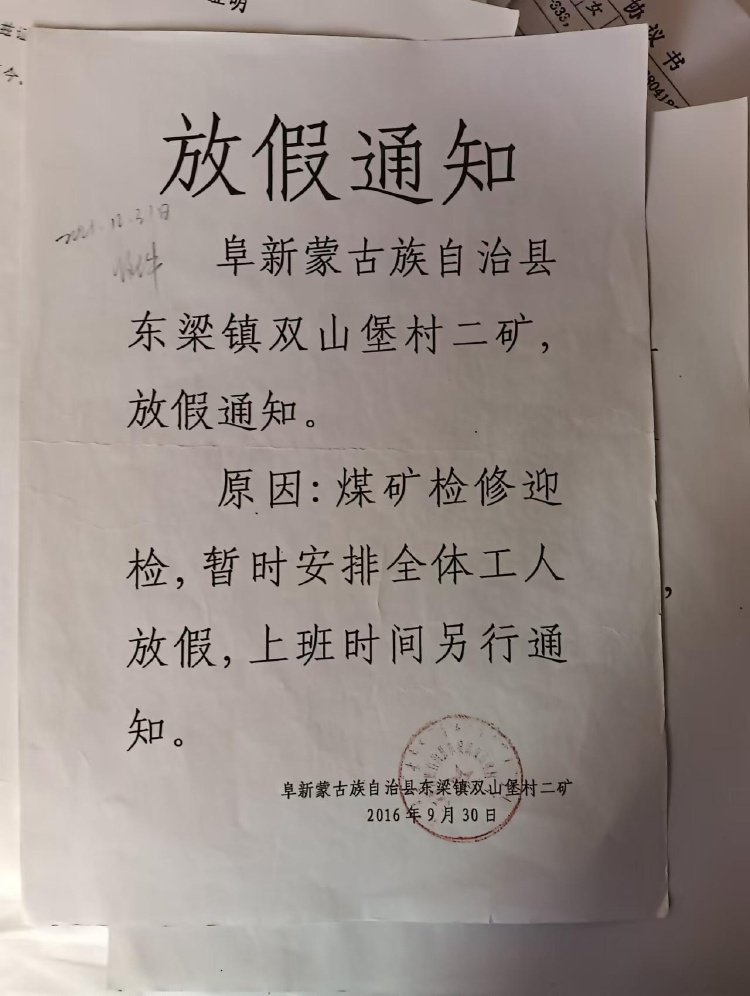 明
协议书
女
333,
放假通知
2021.12.31日
收件
阜新蒙古族自治县
东梁镇双山堡村二矿,
放假通知。
原因:煤矿检修迎
检,暂时安排全体工人
放假,上班时间另行通
知。
阜新蒙古族自治县东梁镇双山堡村二矿
2016年9月30日